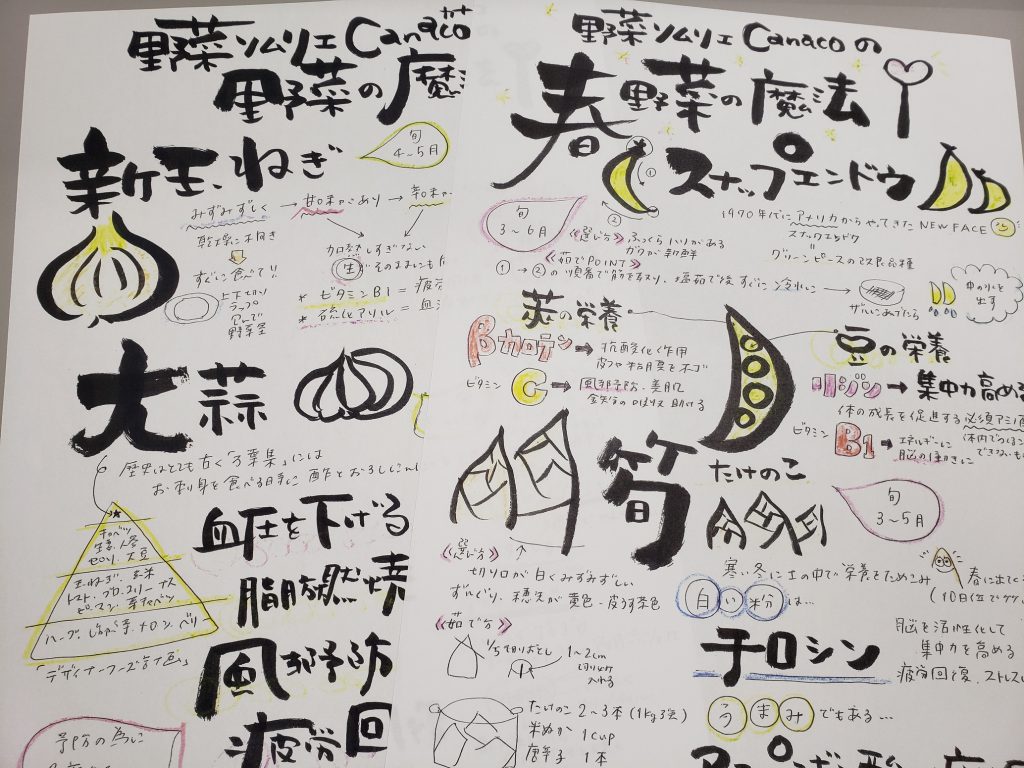 野菜ソムリエCanaco
野菜の魔
新玉ねぎ
旬
4~5月
みずみずしく → 甘味があり → 辛味が
乾燥に不向き
すぐに食べて!!
上下切り
ラップ
包んで
野菜室
加熱しすぎない
生 がそのままにも
* ビタミンB1 = 疲労
* 硫化アリル = 血
大蒜
歴史はとても古く「万葉集」には
お刺身を食べる時に 酢とおろしにんに
キャベツ
生姜 人参
セロリ 大豆
玉ねぎ 玄米
トマト ブロッコリー ナス
ピーマン 芽キャベツ
「デザイナーフーズ計画」
血圧を下げる
脂肪燃焼
風邪予防
疲労回
予防の為に
野菜ソムリエCanacoの
春野菜の魔法
スナップエンドウ
旬
3~6月
1970年代にアメリカからやってきた NEW FACE
スナックエンドウ
グリーンピースの改良品種
《選び方》ふっくらハリがある
ガクが新鮮
《茹でPOINT》
①→②の順番で筋を取り、塩茹で後すぐに冷水に
①
②
ザルにあげたら
中の水を
出す
莢の栄養
βカロテン → 抗酸化作用
皮フや粘膜を
ビタミン C → 風邪予防・美肌
鉄分の 助ける
豆の栄養
リジン → 集中力高める
体の成長を促進する必須アミノ酸
ビタミン B1 → エネルギーに
脳の働きに
体内で
できない
筍
たけのこ
旬
3~5月
《選び方》
切り口が白くみずみずしい
ずんぐり、穂先が黄色・皮うす茶色
《茹で方》
1/5切りおとし
1~2cm
切り込み
入れる
たけのこ 2~3本 (1kg 3
米ぬか 1cup
唐辛子 1本
寒い冬に土の中で栄養をためこみ
春に出てく
(10日位で
白い粉は…
チロシン
脳を活性化して
集中力を高める
疲労回復、ストレス
うまみでもある…